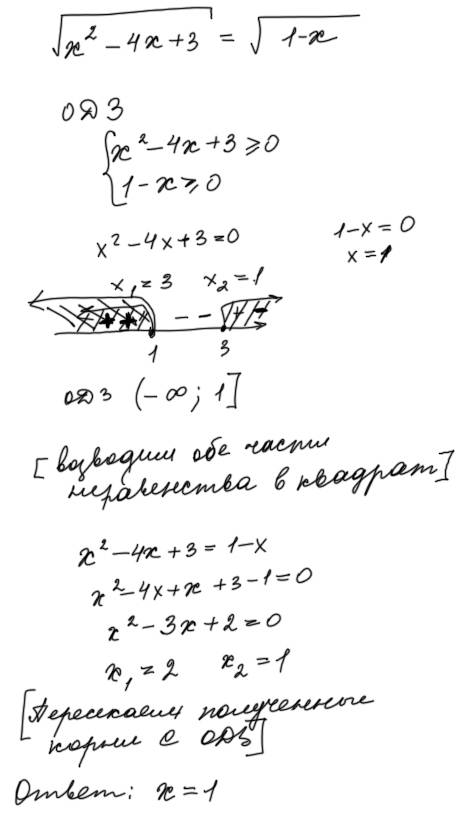 √(x² - 4x + 3) = √(1-x)
ОДЗ
{ x² - 4x + 3 ⩾ 0
1 - x ⩾ 0
x² - 4x + 3 = 0
1 - x = 0
x = 1
x₁ = 3 x₂ = 1
+ + - - + +
1 3
ОДЗ (-∞; 1]
[возводим обе части
неравенства в квадрат]
x² - 4x + 3 = 1 - x
x² - 4x + x + 3 - 1 = 0
x² - 3x + 2 = 0
x₁ = 2 x₂ = 1
[Пересекаем полученные
корни с ОДЗ]
Ответ: x = 1